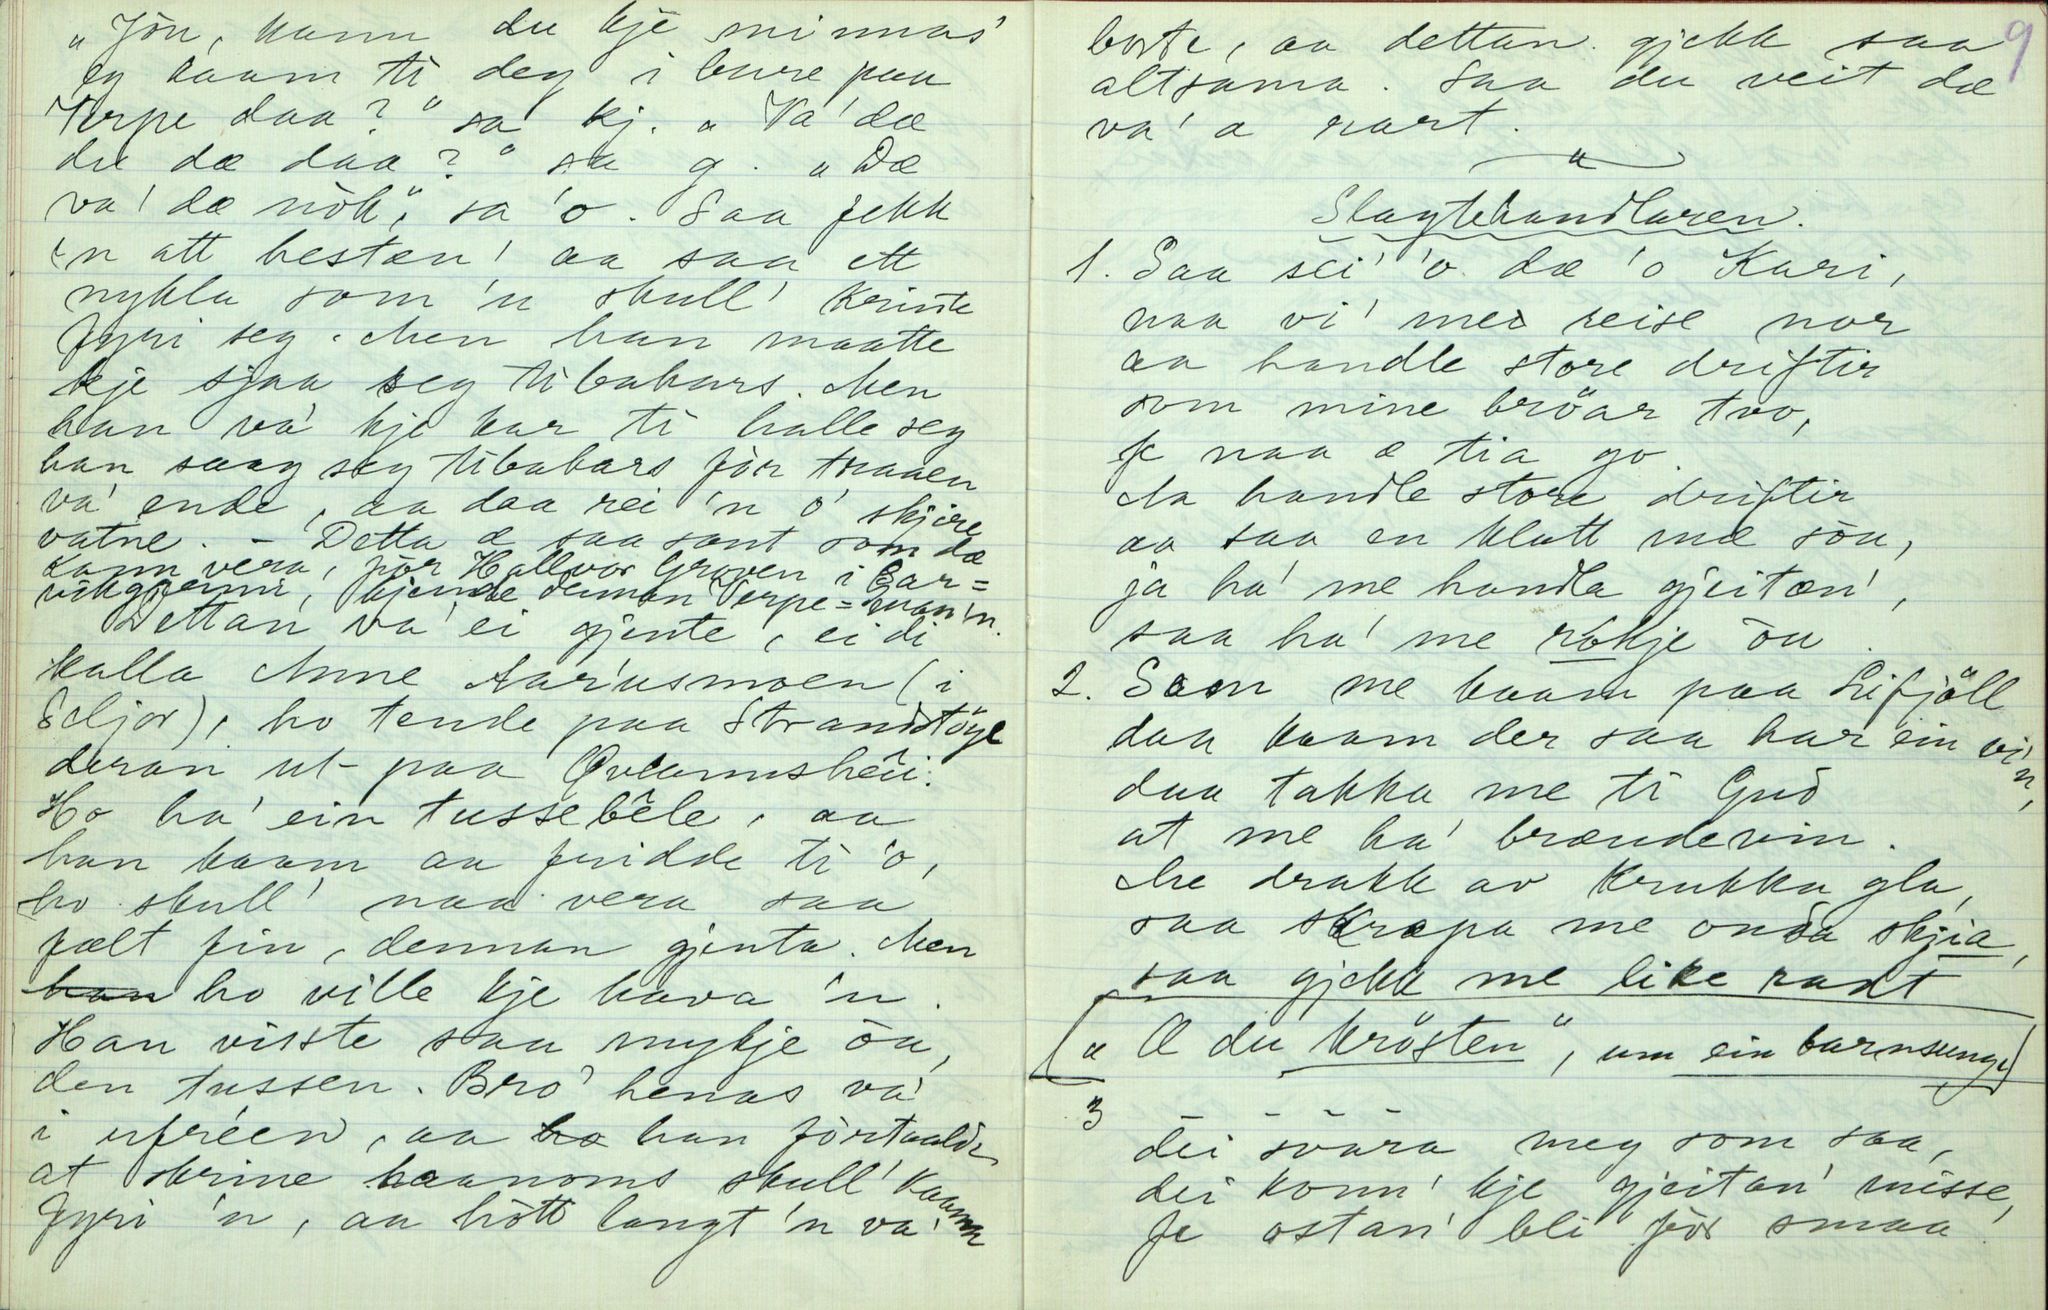 „Jón, kann du kje minnas'
eg kaam ti deg i bure paa
Verpe daa?" sa kj. „Va' dæ
du dæ daa?" sa g. „Dæ
va' dæ nòk", sa 'o. Saa fekk
'n att hesten' aa saa ett
nykla som 'n skull' krinte
fyri seg. Men han maatte
kje sjaa seg tibakars. Men
han va' kje kar ti halle seg
han saag seg tibakars før traaen
va' ende, aa daa rei 'n o' skjire
vatne. – Detta æ saa sant som dæ
kann vera, før Hallvor Graven i Bar=
vikgrenni, kjende denman Verpe=man'n.
Dettan va' ei gjente, ei di
kalla Anne Aarusmoen (i
Seljor), ho tende paa Strandstöyl
deran ut paa Qvamnshêii.
Ho ha' ein tussebêle, aa
han kaam aa fridde ti 'o,
ho skull' naa vera saa
fælt fin, denman gjenta. Men
ho ville kje hava 'n.
Han visste saa mykje òu,
den tussen. Bro' henas va'
i ufréen, aa han førtaalde
at skrine haanoms skull' kaamm
fyri 'n, aa hött langt 'n va'
9
borte, aa dettan gjekk saa
altsama. Saa du veit dæ
va' a rart.
"
Slagtehandlaren.
1. Saa sèi' 'o dæ 'o Kari,
naa vi' me reise nor
aa handle store driftir
som mine bröar tvo,
fe naa æ tia go.
Aa handle store driftir
aa saa en klatt me söu,
ja ha' me handla gjeiten',
saa ha' me rökje òu.
2. Som me kaam paa Lifjöll
daa kaam der saa har ein vi'n,
daa takka me ti Gud
at me ha' brændevin.
Me drakk av krukka gla,
saa skrapa me onda skjia,
saa gjekk me like rart
[„Æ du krösten", um ein barnsunge]
3
dèi svára meg som saa,
dei konn' kje gjeitan' misse,
fe ostan' bli før smaa